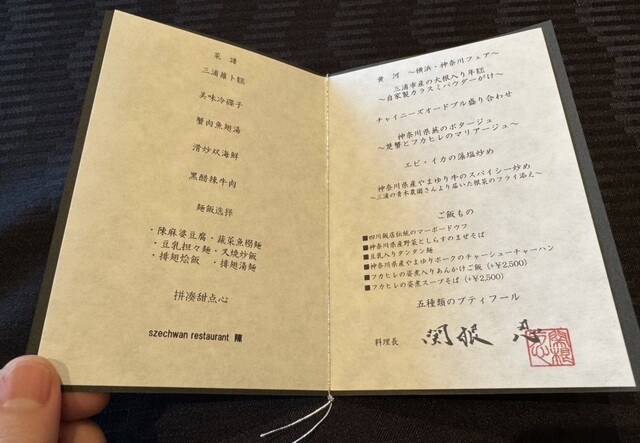 菜譜
三浦蘿卜糕
美味冷碟子
蟹肉魚翅湯
滑炒双海鮮
黒醋辣牛肉
麺飯选择
・陳麻婆豆腐・蔬菜魚栩麺
・豆乳担々麺・叉焼炒飯
・排翅烩飯 ・排翅湯麺
拼凑甜点心
szechwan restaurant 陳
黄河 ～横浜・神奈川フェア～
三浦市産の大根入り年糕
～自家製カラスミパウダーがけ～
チャイニーズオードブル盛り合わせ
神奈川県蕪のポタージュ
～楚蟹とフカヒレのマリアージュ～
エビ・イカの藻塩炒め
神奈川県産やまゆり牛のスパイシー炒め
～三浦の青木農園さんより届いた根菜のフライ添え～
ご飯もの
■四川飯店伝統のマーボードウフ
■神奈川県産野菜としらすのまぜそば
■豆乳入りタンタン麺
■神奈川県産やまゆりポークのチャーシューチャーハン
■フカヒレの姿煮入りあんかけご飯（+￥2,500）
■フカヒレの姿煮スープそば（+￥2,500）
五種類のプティフール
料理長 関根